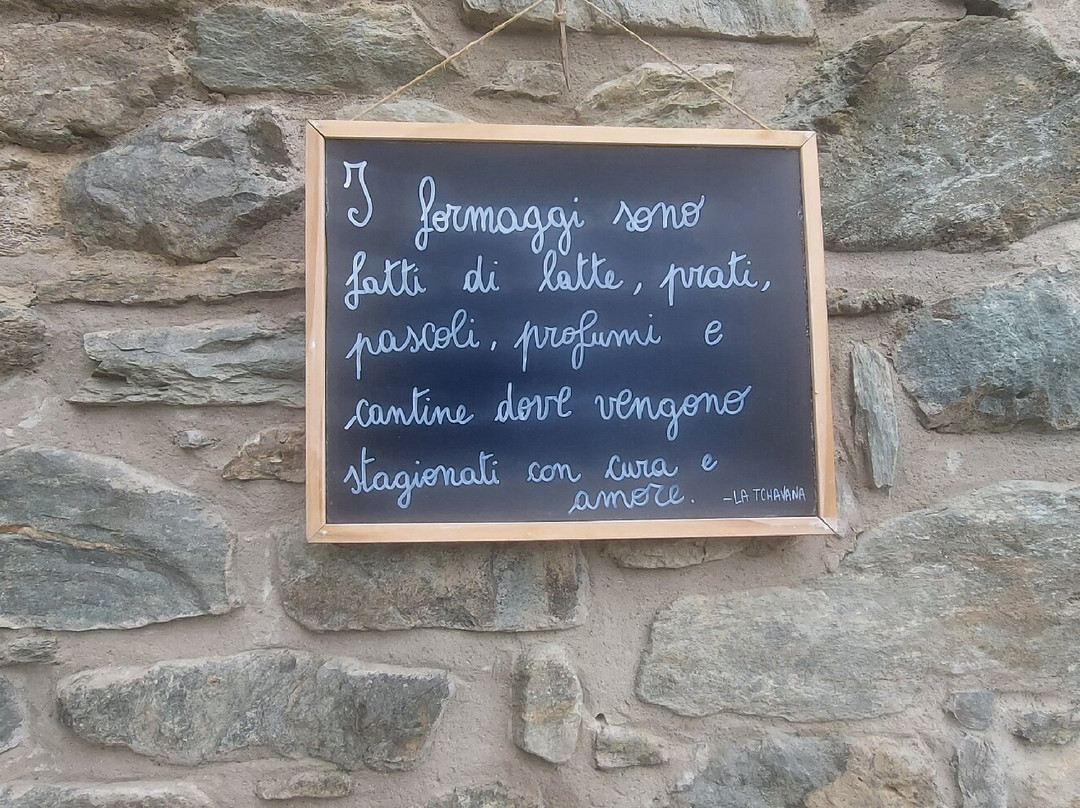 I formaggi sono
fatti di latte, prati,
pascoli, profumi e
cantine dove vengono
stagionati con cura e
amore. -LA TCHAVANA